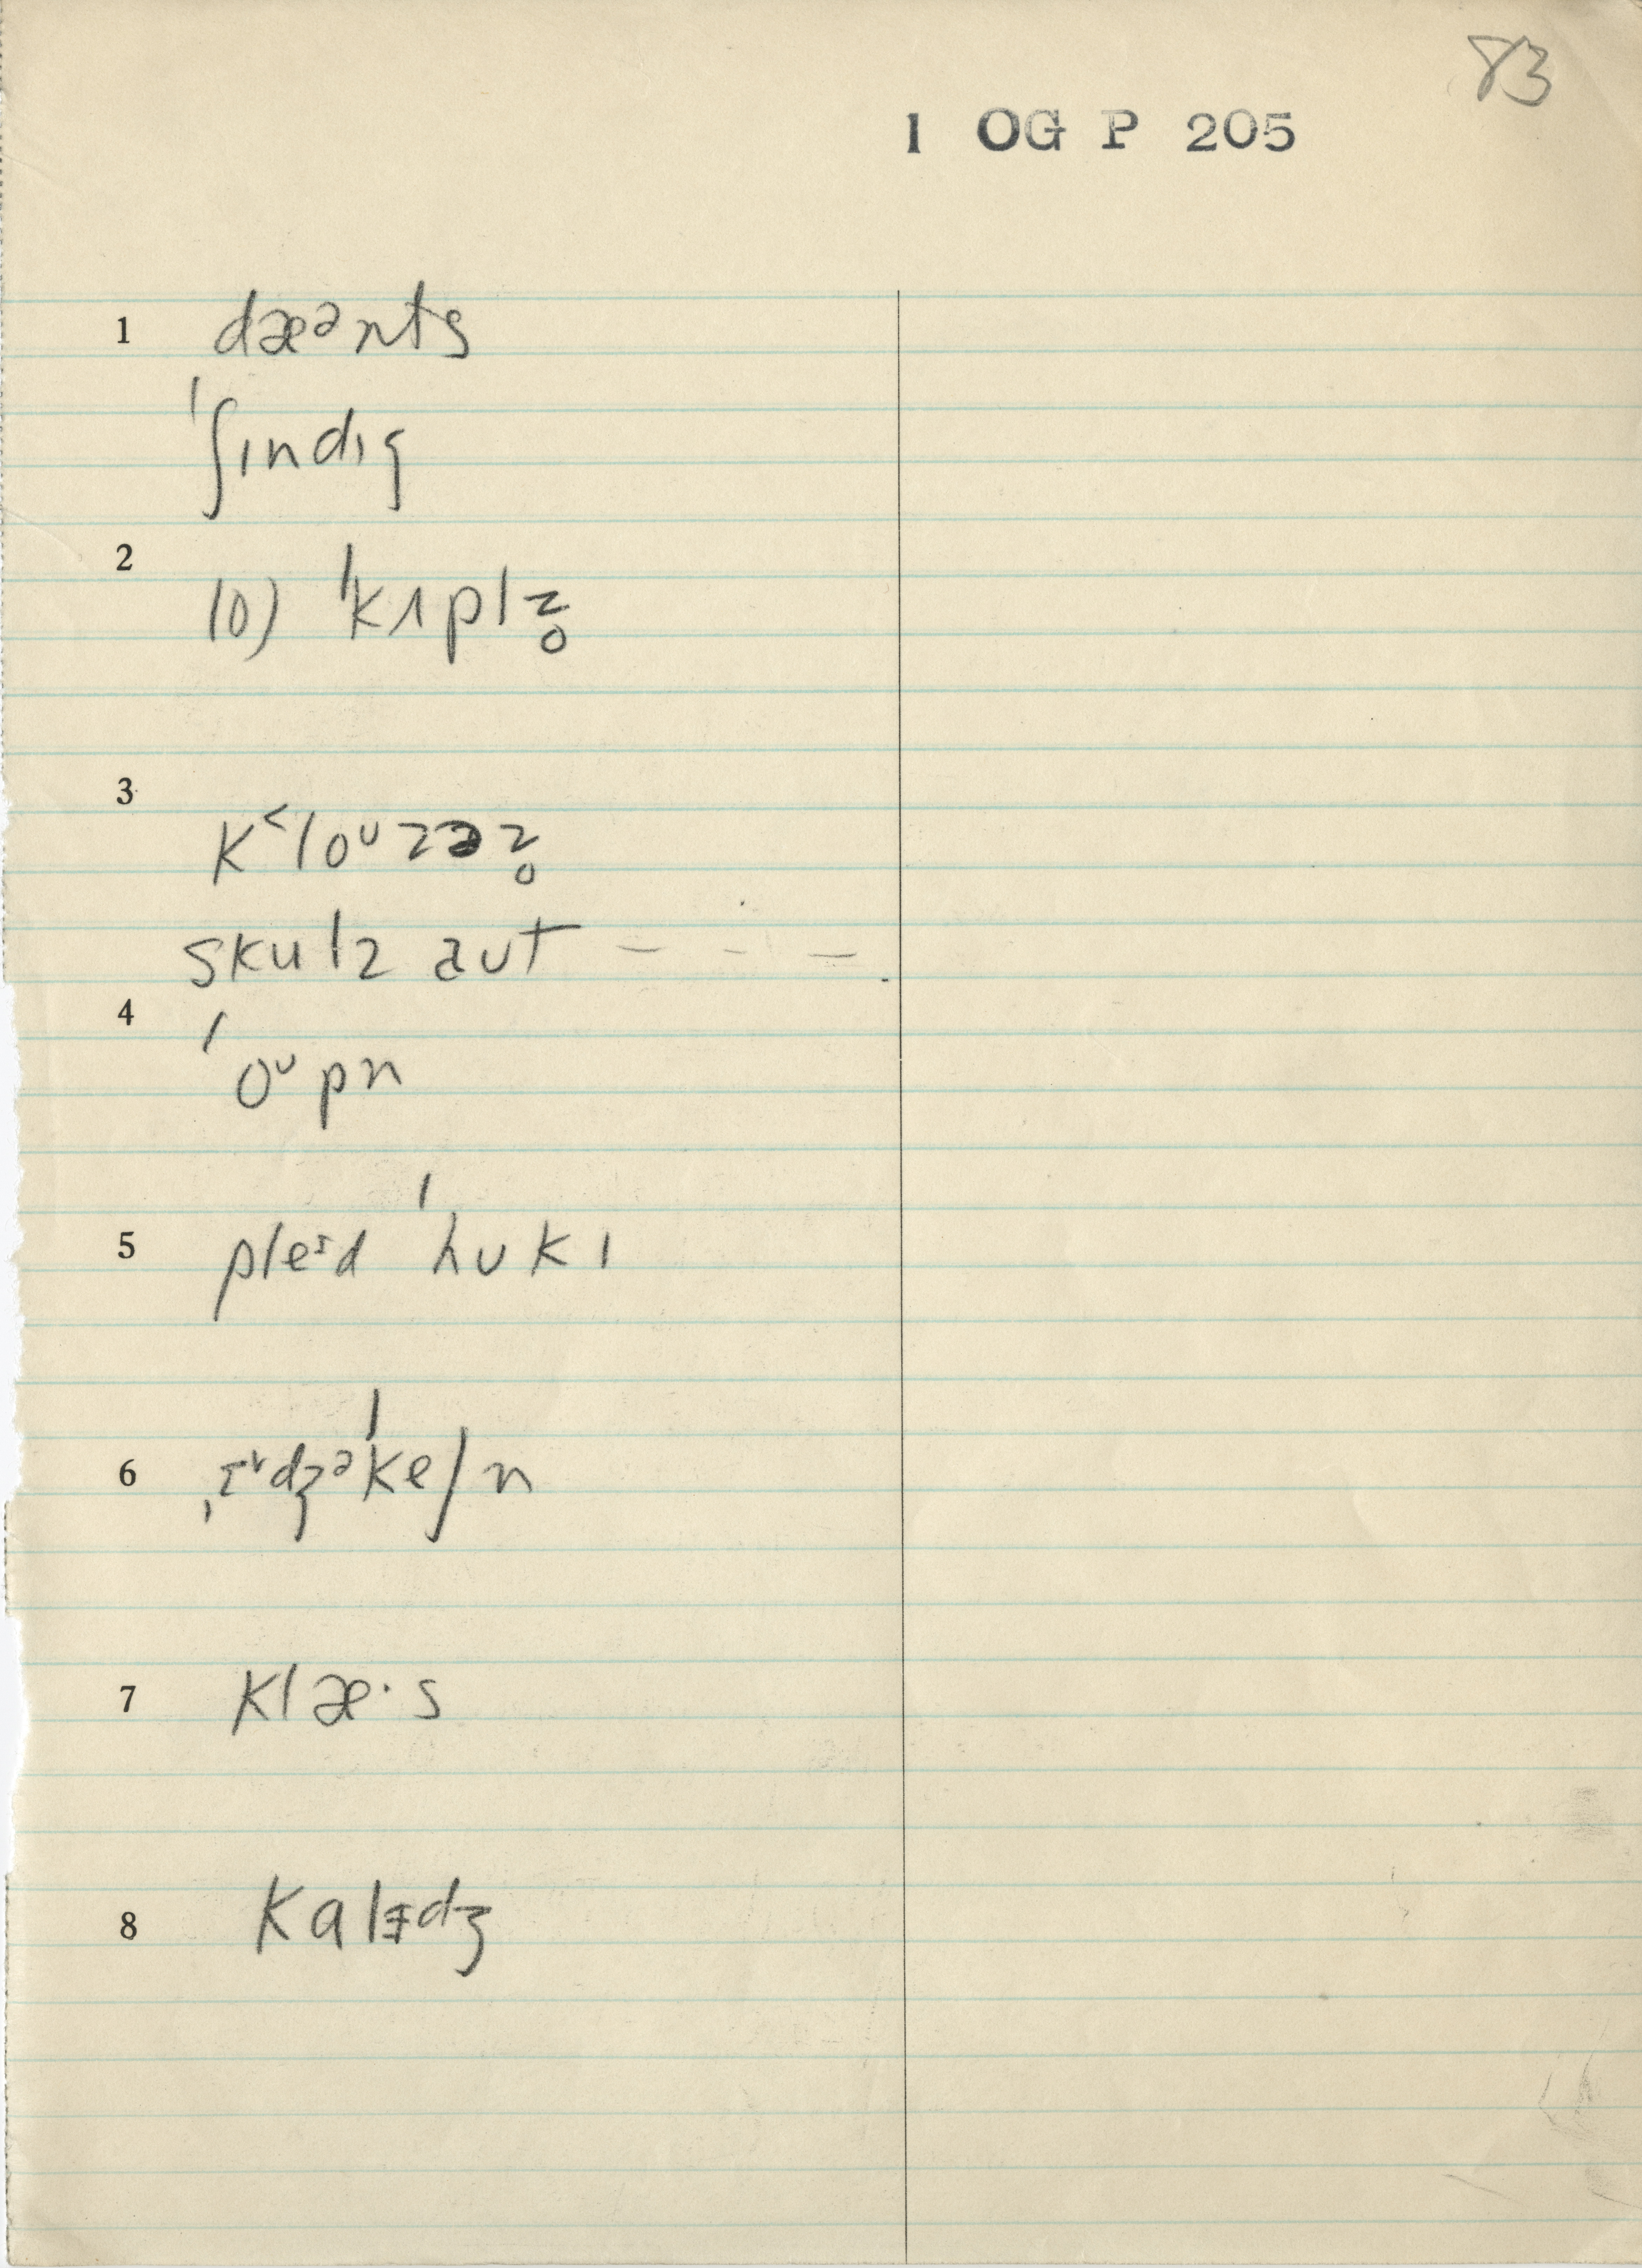 83
1 OG P 205
1 dæᵊnts
ˈʃɪndɪg
2 10) ˈkɪplz̥
3 k˂loᶷzəz̥
skulz aut – – – –
4 ˈoᶷpn
5 pleᶦd ˈhukɪ
6 ˌɛᶷdʒᵊˈkeʃn
7 klæ·s
8 kalɪdʒ